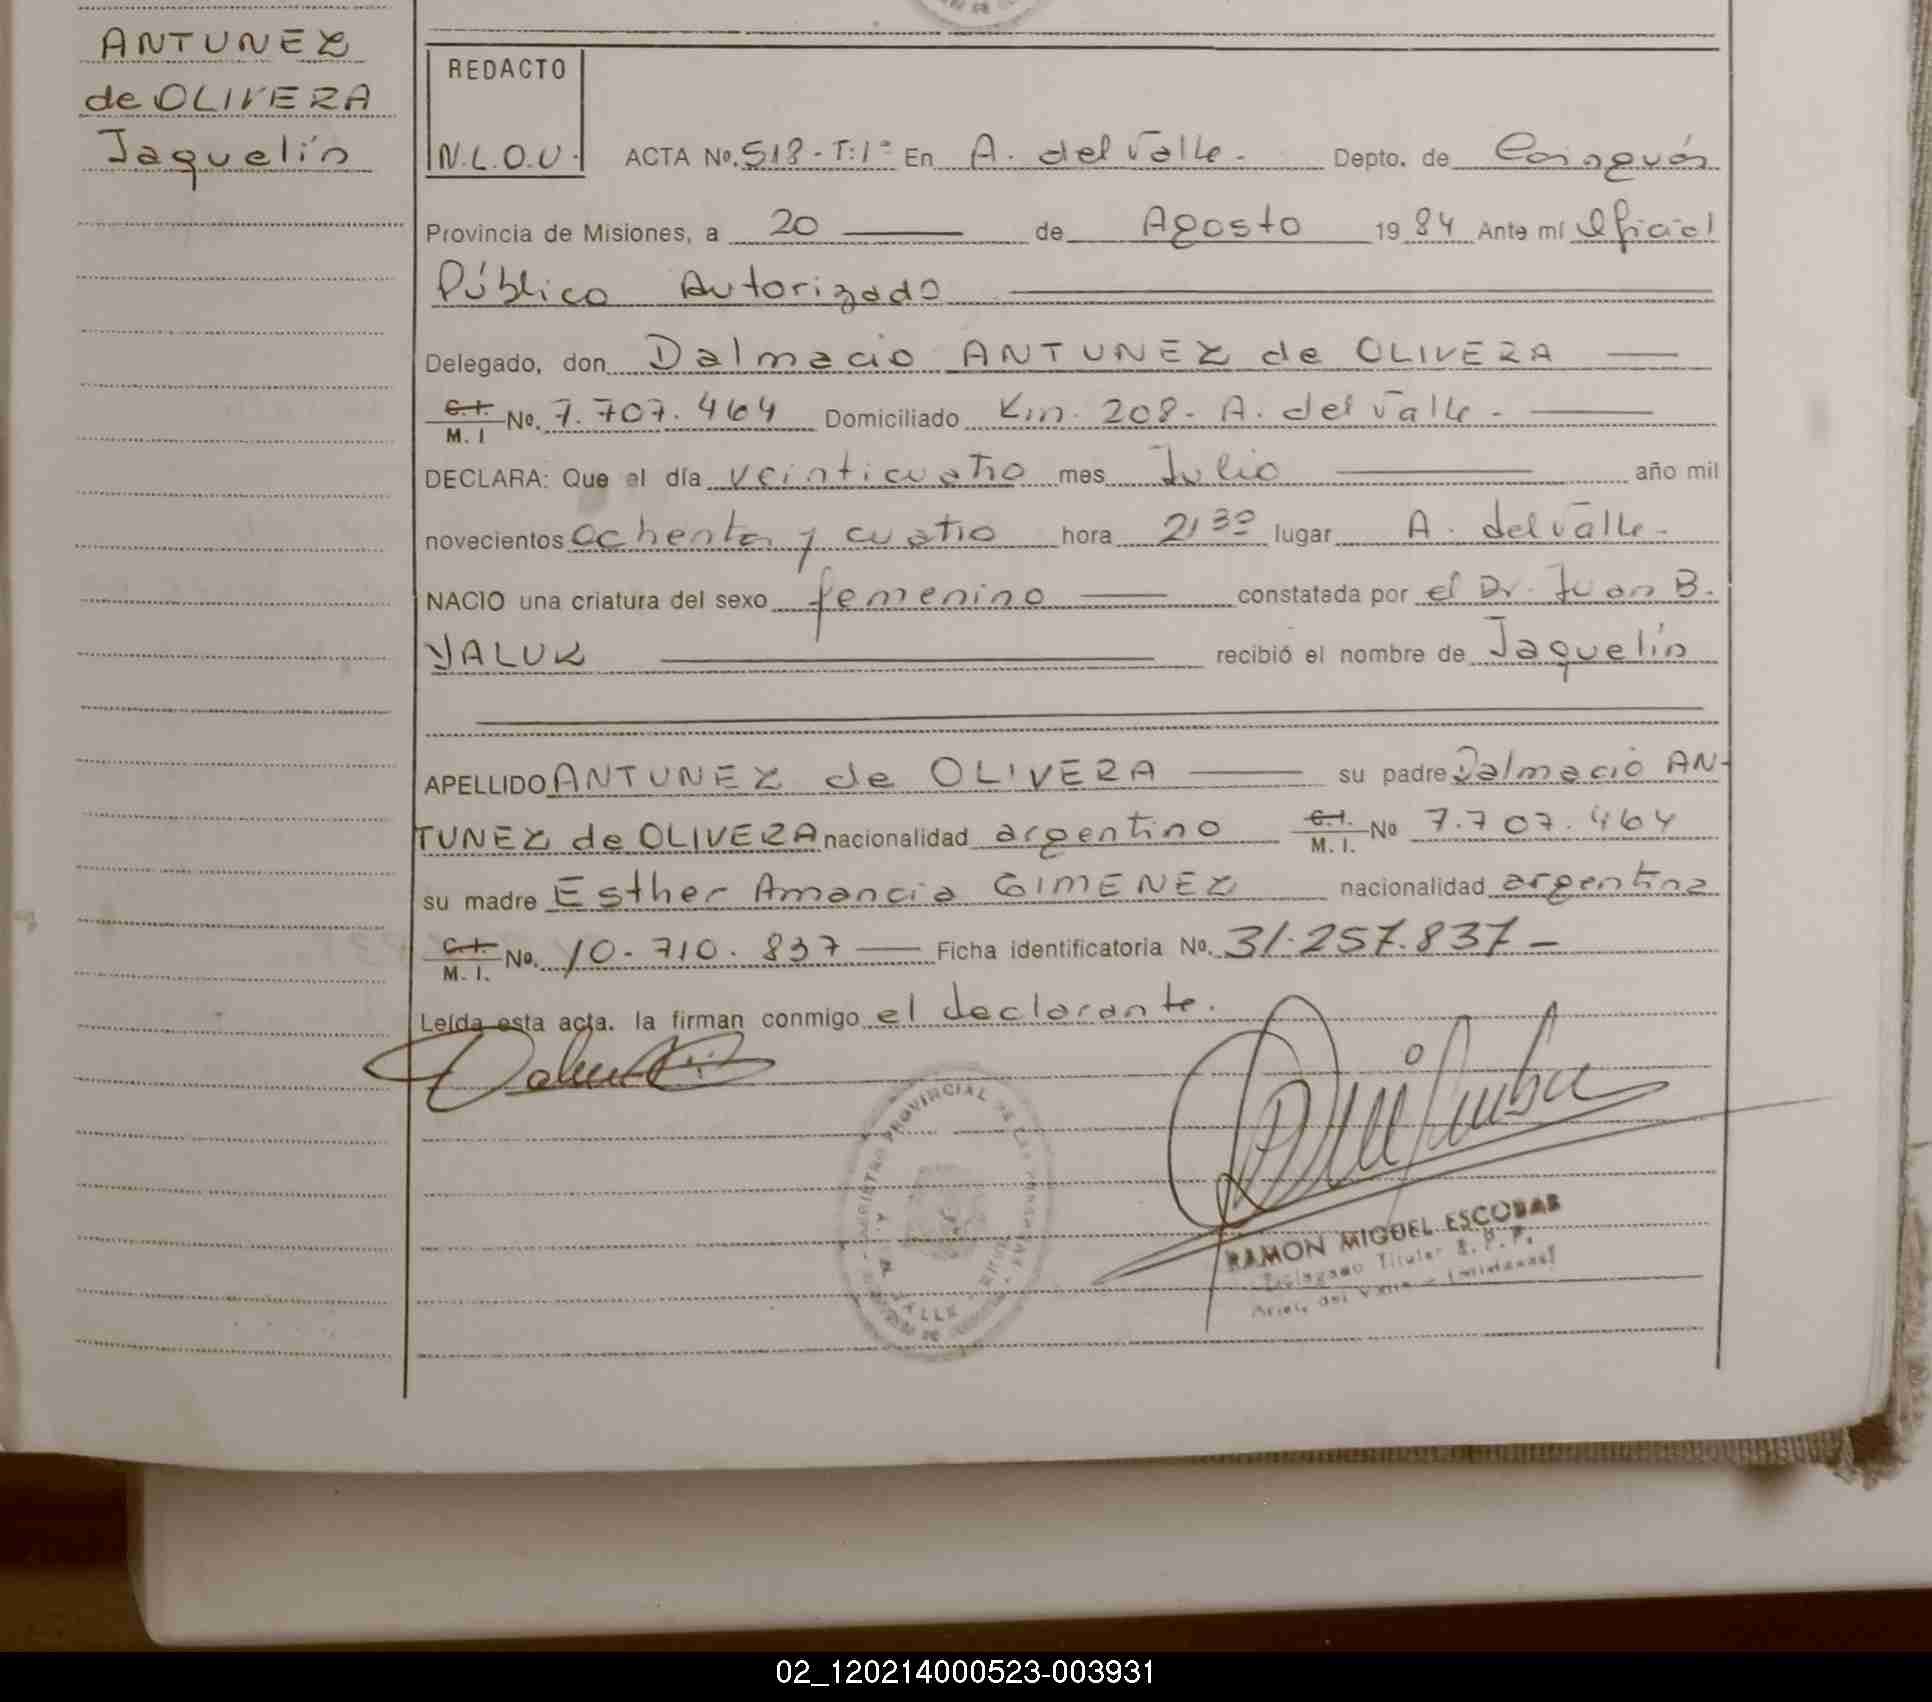 ANTUNEZ
de OLIVERA
Jaquelín
REDACTO
N.L.O.U.
ACTA No. 518 - T:1º En A. del Valle. Depto. de Cainguás
Provincia de Misiones, a 20 de Agosto 1984 Ante mí Oficial
Público Autorizado
Delegado, don Dalmacio ANTUNEZ de OLIVERA
C.I. M.I No. 7.707.464 Domiciliado Km. 208 - A. del Valle -
DECLARA: Que el día veinticuatro mes Julio año mil
novecientos ochenta y cuatro hora 21³⁰ lugar A. del Valle -
NACIO una criatura del sexo femenino constatada por el Dr. Juan B.
YALUK recibió el nombre de Jaquelín
APELLIDO ANTUNEZ de OLIVERA su padre Dalmacio AN-
TUNEZ de OLIVERA nacionalidad argentino C.I. M.I. No 7.707.464
su madre Esther Amancia GIMENEZ nacionalidad argentina
C.I. M.I. No. 10.710.837 Ficha identificatoria No. 31.257.837 -
Leída esta acta. la firman conmigo el declarante.
REGISTRO PROVINCIAL DE LAS PERSONAS
VALLE
RAMON MIGUEL ESCOBAR
Delegado Titular R.P.P.
del Valle - (Misiones)
02_120214000523-003931